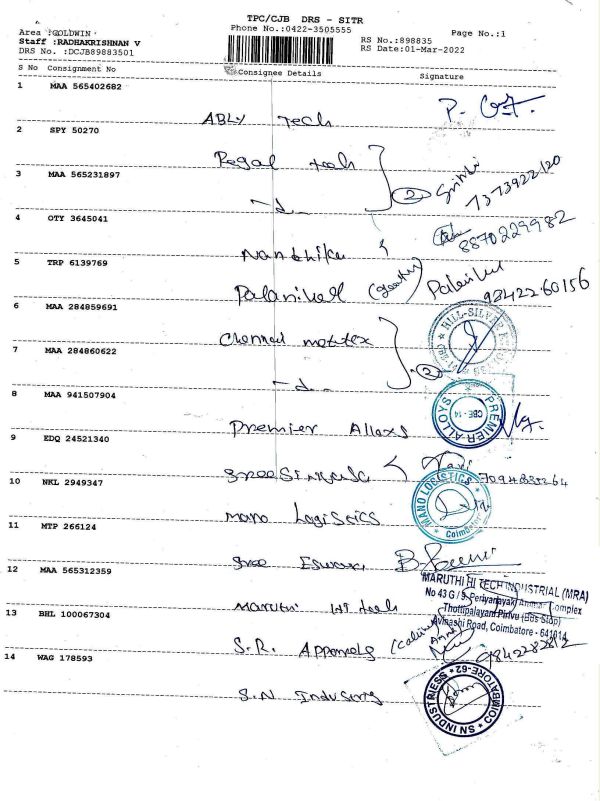 TPC/CJB DRS - SITR
Area :GOLDWIN
Phone No.:0422-3505555
Page No.:1
Staff :RADHAKRISHNAN V
RS No.:898835
DRS No. :DCJB89883501
RS Date:01-Mar-2022
S No Consignment No Consignee Details Signature
1 MAA 565402682
ABLY tech
2 SPY 50270
Regal tech
3 MAA 565231897
2
7373922120
4 OTY 3645041
8870229982
Nandhika
5 TRP 6139769
Palanivel
98422 60156
6 MAA 284859691
HILL-SILVER
Chennai
7 MAA 284860622
2
8 MAA 941507904
PREMIER-ALLOYS
CBE - 14
Premier Alloys
9 EDQ 24521340
10 NKL 2949347
MANO LOGISTICS
Coimbatore
Mano Logistics
11 MTP 266124
Sree Eswari
12 MAA 565312359
MARUTHI HI TECH INDUSTRIAL (MRA)
No 43 G / 9, Periyanayaki Ammal Complex
Thottipalayam Pirivu (Bus Stop)
Avinashi Road, Coimbatore - 641014
Maruthi Hi tech
13 BHL 100067304
S.R. Apparels
9842282812
14 WAG 178593
S.N Industry
SN INDUSTRIESS * COIMBATORE-62 *